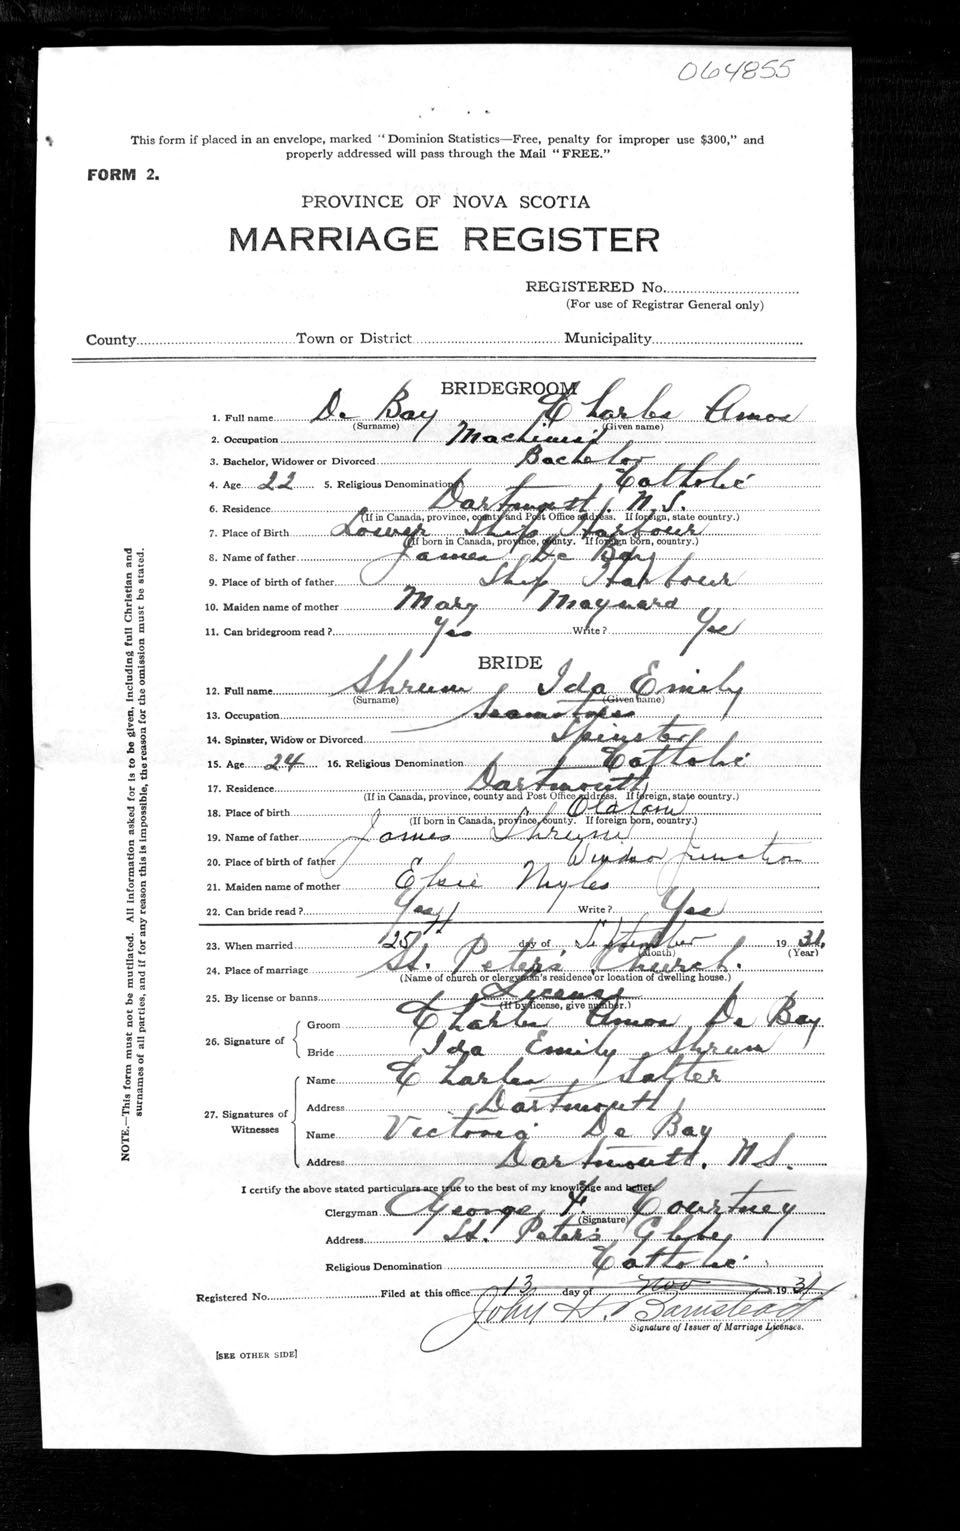 064855
This form if placed in an envelope, marked "Dominion Statistics—Free, penalty for improper use $300," and
properly addressed will pass through the Mail "FREE."
FORM 2.
PROVINCE OF NOVA SCOTIA
MARRIAGE REGISTER
REGISTERED No.
(For use of Registrar General only)
County Town or District Municipality
BRIDEGROOM
1. Full name De Bay Charles Amos
(Surname) (Given name)
2. Occupation Machinist
3. Bachelor, Widower or Divorced Bachelor
4. Age 22 5. Religious Denomination Catholic
6. Residence Dartmouth N.S.
(If in Canada, province, county and Post Office address. If foreign, state country.)
7. Place of Birth Lower Ship Harbour
(If born in Canada, province, county. If foreign born, country.)
8. Name of father James De Bay
9. Place of birth of father Ship Harbour
10. Maiden name of mother Mary Maynard
11. Can bridegroom read? Yes Write? Yes
BRIDE
12. Full name Shrum Ida Emily
(Surname) (Given name)
13. Occupation Seamstress
14. Spinster, Widow or Divorced Spinster
15. Age 24 16. Religious Denomination Catholic
17. Residence Dartmouth
(If in Canada, province, county and Post Office address. If foreign, state country.)
18. Place of birth Oldham
(If born in Canada, province, county. If foreign born, country.)
19. Name of father James Shrum
20. Place of birth of father Windsor Junction
21. Maiden name of mother Elsie Myles
22. Can bride read? Yes Write? Yes
23. When married 25th day of September 1931.
(Month) (Year)
24. Place of marriage St. Peter's Church.
(Name of church or clergyman's residence or location of dwelling house.)
25. By license or banns License
(If by license, give number.)
26. Signature of
Groom Charles Amos De Bay
Bride Ida Emily Shrum
27. Signatures of Witnesses
Name Charles Salter
Address Dartmouth
Name Victoria De Bay
Address Dartmouth, N.S.
I certify the above stated particulars are true to the best of my knowledge and belief.
Clergyman George F. Courtney
(Signature)
Address St. Peter's Glebe
Religious Denomination Catholic
Registered No. Filed at this office 13 day of Nov 1931
John H. Barnstead
Signature of Issuer of Marriage Licenses.
[SEE OTHER SIDE]
NOTE.—This form must not be mutilated. All information asked for is to be given, including full Christian and
surnames of all parties, and if for any reason this is impossible, the reason for the omission must be stated.